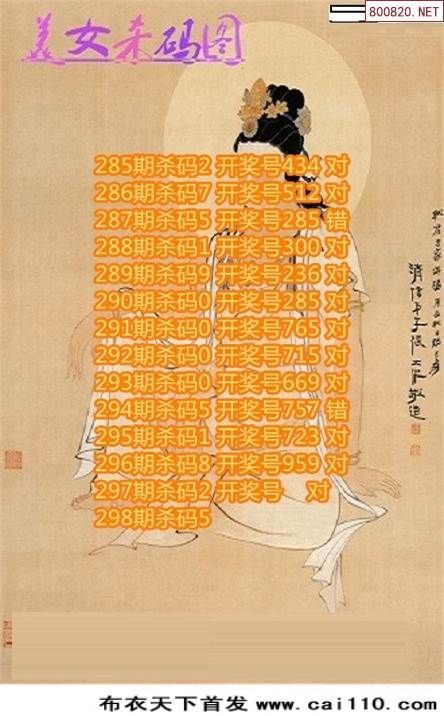 800820.NET
美女杀码图
285期杀码2 开奖号434 对
286期杀码7 开奖号512 对
287期杀码5 开奖号285 错
288期杀码1 开奖号300 对
289期杀码9 开奖号236 对
290期杀码0 开奖号285 对
291期杀码0 开奖号765 对
292期杀码0 开奖号715 对
293期杀码0 开奖号669 对
294期杀码5 开奖号757 错
295期杀码1 开奖号723 对
296期杀码8 开奖号959 对
297期杀码2 开奖号 对
298期杀码5
布衣天下首发 www.cai110.com